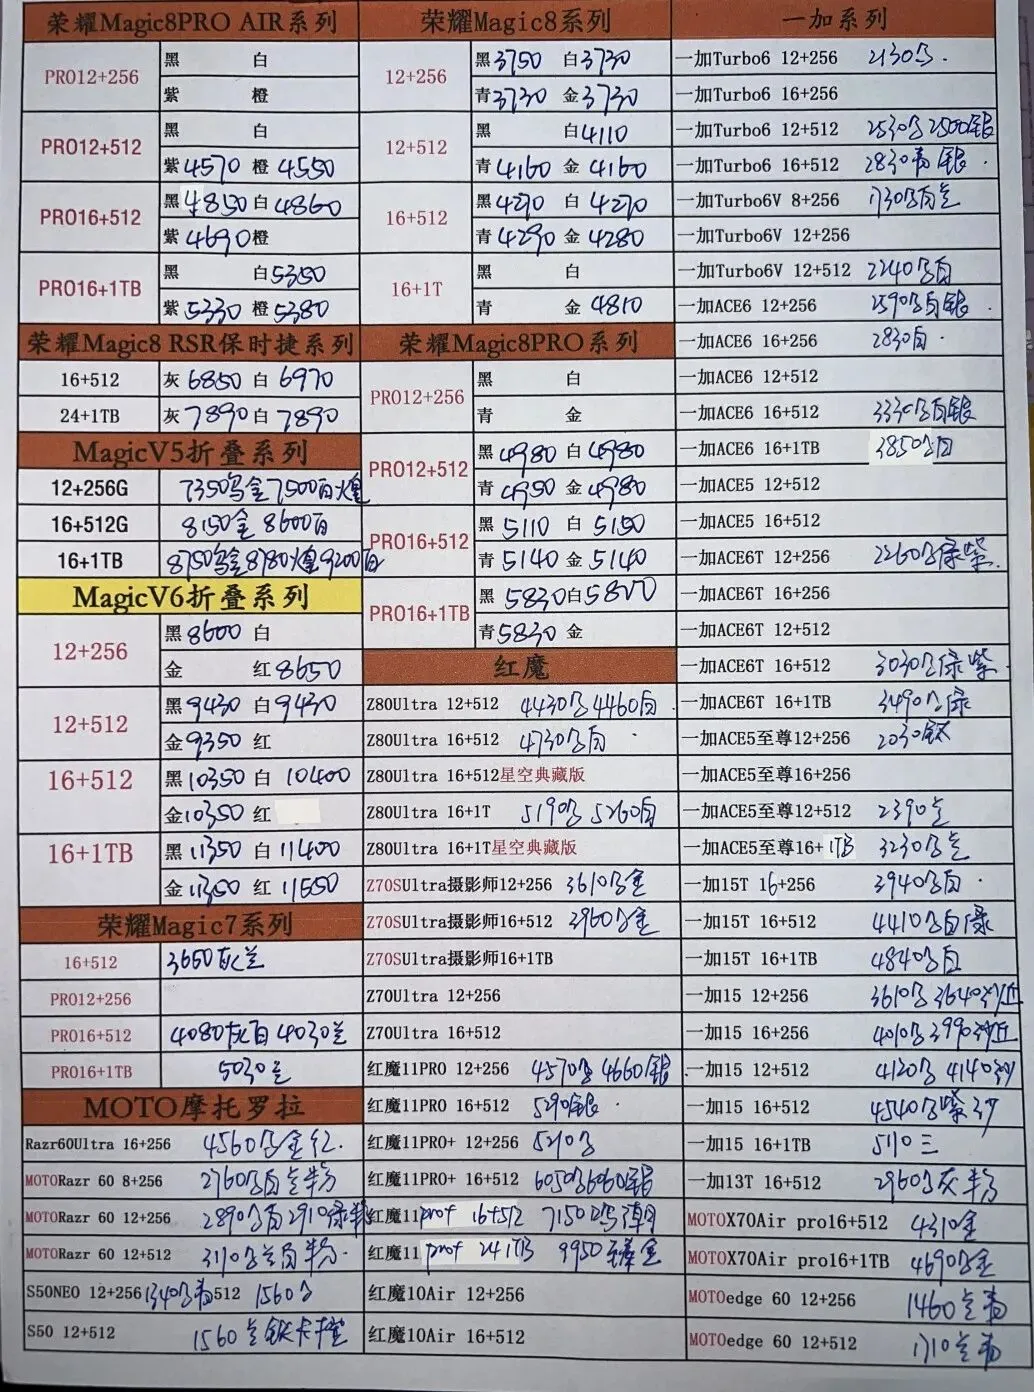 荣耀Magic8PRO AIR系列
PRO12+256 黑 白
紫 橙
PRO12+512 黑 白
紫4570 橙 4550
PRO16+512 黑4850 白 4860
紫4690 橙
PRO16+1TB 黑 白5350
紫 5330 橙 5380
荣耀Magic8 RSR保时捷系列
16+512 灰 6850 白 6970
24+1TB 灰 7890 白 7890
MagicV5折叠系列
12+256G 7350乌金 7500白火皇
16+512G 8150金 8600白
16+1TB 8750乌金8780火皇9200白
MagicV6折叠系列
12+256 黑8600 白
金 红8650
12+512 黑9430 白9430
金9350 红
16+512 黑10350 白 10400
金10350 红
16+1TB 黑 11350 白 11400
金11350 红 11550
荣耀Magic7系列
16+512 3650灰兰
PRO12+256
PRO16+512 4080灰白 4030兰
PRO16+1TB 5030兰
MOTO摩托罗拉
Razr60Ultra 16+256 4560合金红.
MOTORazr 60 8+256 2760合白兰粉
MOTORazr 60 12+256 2890合白2910绿粉
MOTORazr 60 12+512 3110合兰白粉.
S50NEO 12+256 1340合青512 1560合
S50 12+512 1560兰
荣耀Magic8系列
12+256 黑3750 白3730
青3730 金3730
12+512 黑 白4110
青4160 金 4160
16+512 黑4270 白 4270
青4290 金 4280
16+1T 黑 白
青 金 4810
荣耀Magic8PRO系列
PRO12+256 黑 白
青 金
PRO12+512 黑 4980 白 4980
青 4950 金 4980
PRO16+512 黑 5110 白 5150
青 5140 金 5140
PRO16+1TB 黑 5830白
青5830 金
红魔
Z80Ultra 12+512 4430合4460白.
Z80Ultra 16+512 4730合白
Z80Ultra 16+512星空典藏版
Z80Ultra 16+1T 5190合 5260白
Z80Ultra 16+1T星空典藏版
Z70SUltra摄影师12+256 3610合金
Z70SUltra摄影师16+512 3960合金
Z70SUltra摄影师16+1TB
Z70Ultra 12+256
Z70Ultra 16+512
红魔11PRO 12+256 4570合 4660银
红魔11PRO 16+512 5290银.
红魔11PRO+ 12+256 5210合
红魔11PRO+ 16+512 6050合6060银
红魔11prot 16+512 7150
红魔11prot 24 1TB 9950臻金
红魔10Air 12+256
红魔10Air 16+512
一加系列
一加Turbo6 12+256 2130合.
一加Turbo6 16+256
一加Turbo6 12+512 2530合2500银
一加Turbo6 16+512 2830青银.
一加Turbo6V 8+256 1730合白兰
一加Turbo6V 12+256
一加Turbo6V 12+512 2240合白
一加ACE6 12+256 2590合白银.
一加ACE6 16+256 2830白.
一加ACE6 12+512
一加ACE6 16+512 3330合白银
一加ACE6 16+1TB 3850合白
一加ACE5 12+512
一加ACE5 16+512
一加ACE6T 12+256 2260合绿紫.
一加ACE6T 16+256
一加ACE6T 12+512
一加ACE6T 16+512 3030合绿紫
一加ACE6T 16+1TB 3490合绿
一加ACE5至尊12+256 2030钛
一加ACE5至尊16+256
一加ACE5至尊12+512 2390兰
一加ACE5至尊16+1TB 3230合兰
一加15T 16+256 3940合白.
一加15T 16+512 4410合白绿
一加15T 16+1TB 4840合白
一加15 12+256 3610合 3640沙
一加15 16+256 4010合3990沙
一加15 12+512 4120合 4140沙
一加15 16+512 4540合紫沙
一加15 16+1TB 5110三
一加13T 16+512 2960灰粉
MOTOX70Air pro16+512 4310金
MOTOX70Air pro16+1TB 4690合金
MOTOedge 60 12+256 1460兰青
MOTOedge 60 12+512 1710兰青